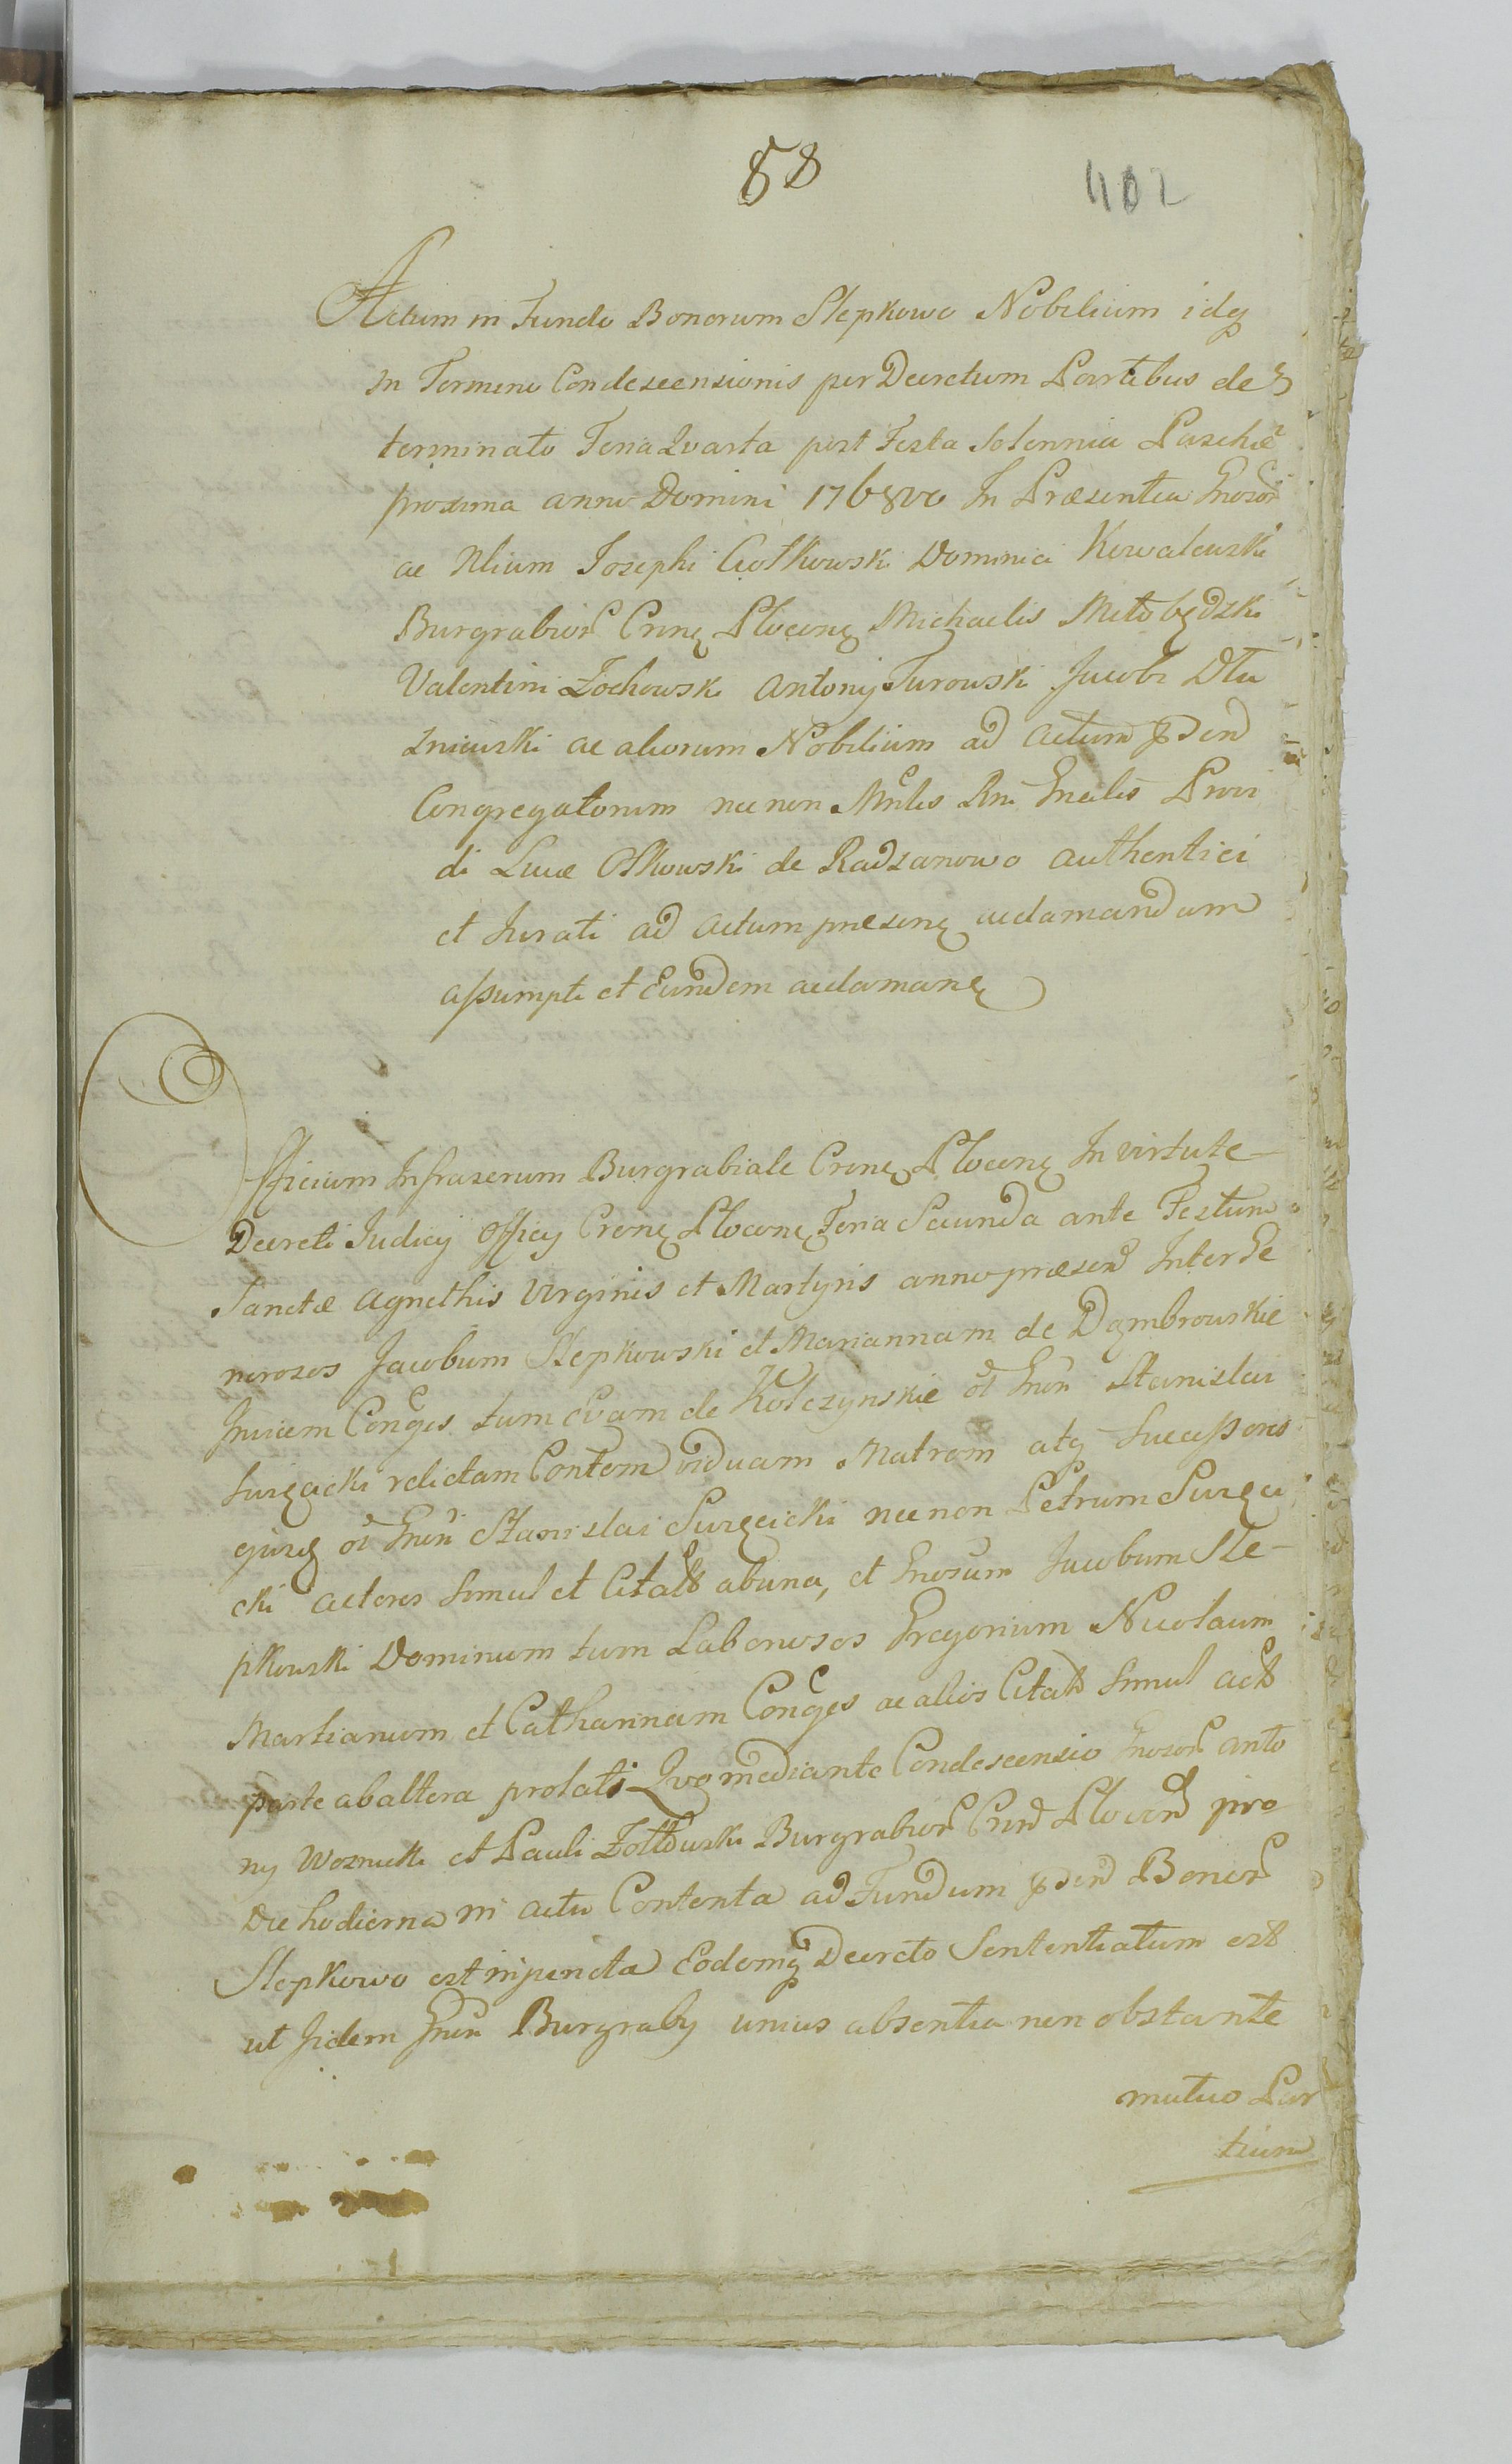 58
402
Actum in Fundo Bonorum Slepkowo Nobilium idq
In Termino Condescensionis per Decretum Partibus de
terminato Feria Qvarta post Festa Solennia Paschæ
proxima anno Domini 1768vo In Præsentia Gnosor
ac Nlium Josephi Ciołkowski Dominici Kowalewski
Burgrabior Crine Plocene Michaelis Miłobędzki
Valentini Żochowski Antonij Turowski Jacobi Dłu
żniewski ac aliorum Nobilium ad Actum pden
Congregatorum nec non Mnlis Rni Gnealis Provi
di Lucæ Olkowski de Radzanowo authentici
et Jurati ad Actum præsene acclamandum
assumpti et Eundem acclamane
Officium Infrascrum Burgrabiale Crene Plocene In virtute
Decreti Judicij Officij Crene Plocene Feria Secunda ante Festum
Sanctæ Agnethis Virginis et Martyris anno præsen Inter Ge
nerosos Jacobum Slepkowski et Mariannam de Dąmbrowskie
Invicem Conges tum Evam de Kolczynskie oi Gnen Stanislai
Surzęcki relictam Contem viduam Matrem atq Successores
ejusq oi Gnen Stanislai Surzęcicki nec non Petrum Surzęci
cki Actores Simul et Citats ab una, et Gnosum Jacobum Sle-
pkowski Dominum tum Laboriosos Gregorium Nicolaum
Martianum et Catharinam Conges ac alios Citats Simul Acts
parte ab altera prolati Qvo mediante Condescensio Gnosor Anto
nij Woznicki et Pauli Żółtowski Burgrabior Crin Plocen pro
Die hodierna in actu Contenta ad Fundum pden Bonor
Slepkowo est injuncta Eodemq Decreto Sententiatum est
ut Iidem Gnen Burgrabij unius absentia non obstante
mutuo Par
tium